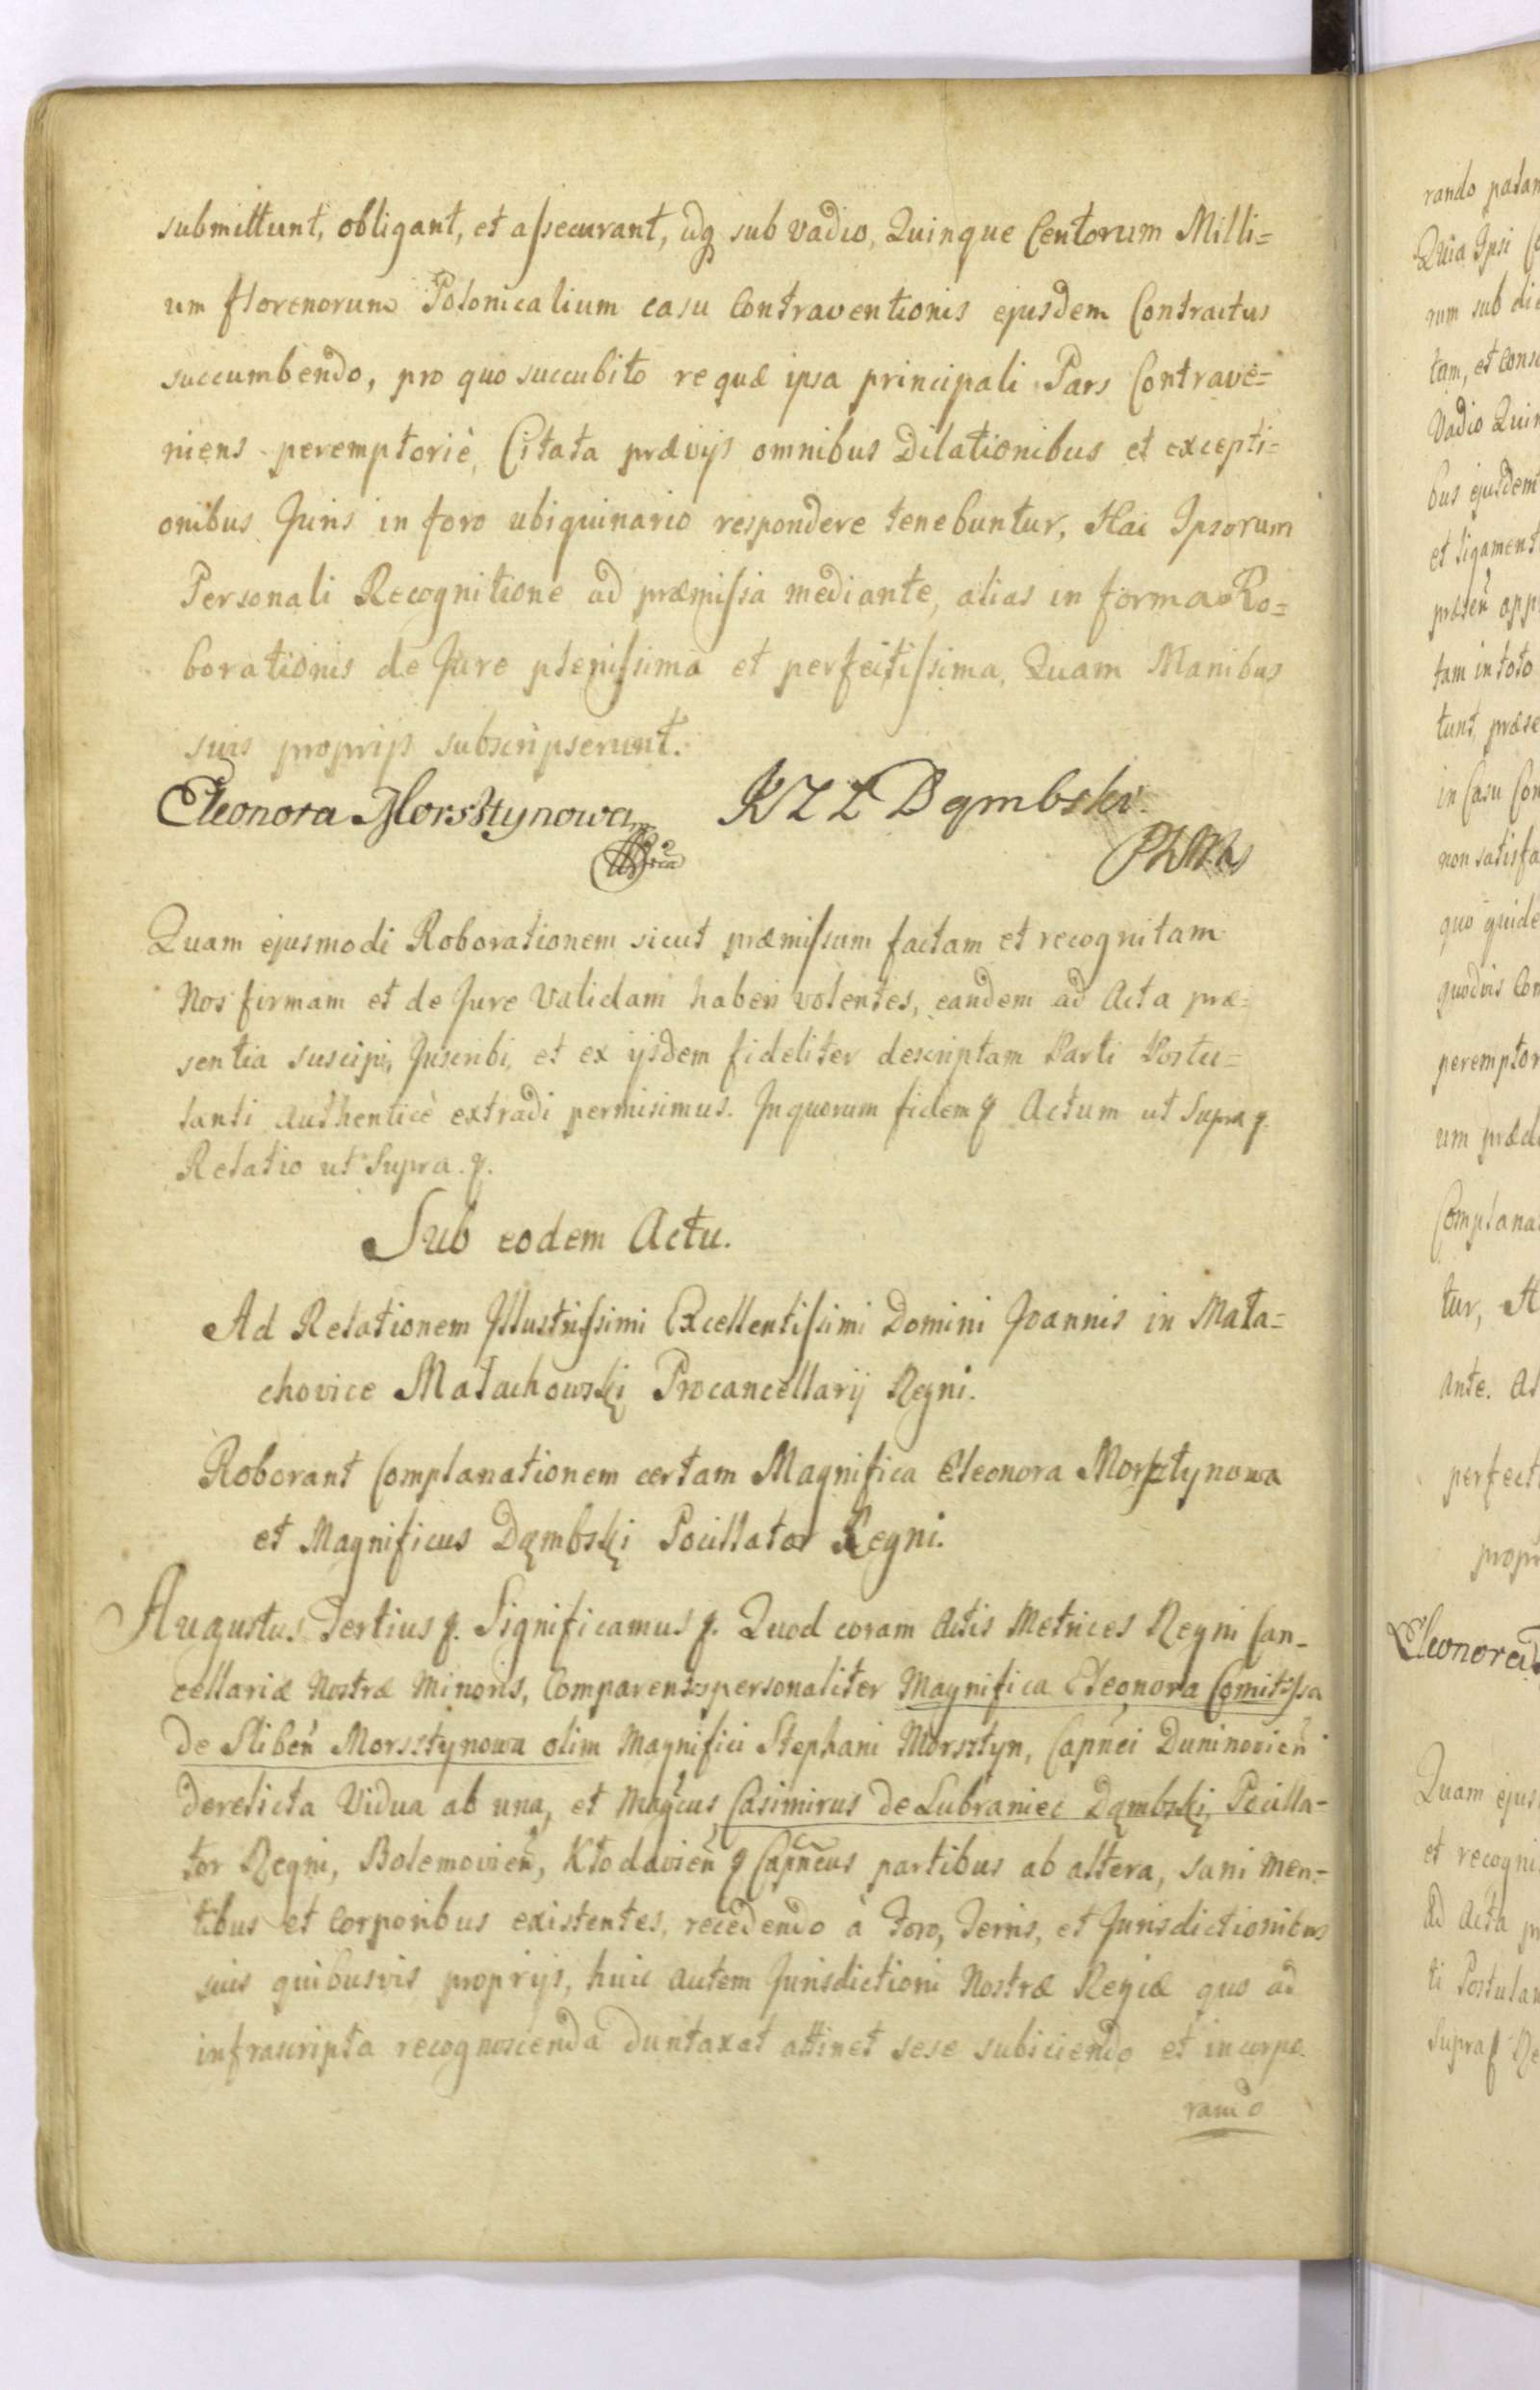 submittunt, obligant, et assecurant, idq sub vadio, Quinque Centorum Milli=
um florenorum Polonicalium casu Contraventionis ejusdem Contractus
succumbendo, pro quo succubito re quæ ipsa principali Pars Contrave=
niens peremptoriè, Citata prævijs omnibus Dilationibus et excepti=
onibus Juris in foro ubiquinario respondere tenebuntur, Hac Ipsorum
Personali Recognitione ad præmissa mediante, alias in forma Ro=
borationis de Jure plenissima et perfectissima, Quam Manibus
suis proprijs subscripserunt.
Eleonora Morsztynowa KZL Dąmbski
Quam ejusmodi Roborationem sicut præmissum factam et recognitam
Nos firmam et de Jure Validam haberi volentes, eandem ad Acta præ=
sentia suscipi, Inscribi, et ex ijsdem fideliter descriptam Parti Postu=
lanti Authenticè extradi permisimus. In quorum fidem q Actum ut Supra q.
Relatio ut Supra. q.
Sub eodem Actu.
Ad Relationem Illustrissimi Excellentissimi Domini Joannis in Mała=
chovice Małachowski Procancellarij Regni.
Roborant Complanationem certam Magnifica Eleonora Morsztynowa
et Magnificus Dąmbski Pocillator Regni.
Augustus Tertius q. Significamus q. Quod coram Actis Metrices Regni Can=
cellariæ Nostræ Minoris, Comparentes personaliter Magnifica Eleonora Comitissa
de Slibeń Morsztynowa olim Magnifici Stephani Morsztyn, Capn̄ei Duninovien̄
derelicta Vidua ab una, et Mag̃cus Casimirus de Lubraniec Dąmbski, Pocilla=
tor Regni, Bolemovien̄, Kłodavien̄ q Capn̄eus partibus ab altera, sani Men=
tibus et Corporibus existentes, recedendo à foro, Terris, et Jurisdictionibus
suis quibusvis proprijs, huic autem Jurisdictioni Nostræ Regiæ quo ad
infrascripta recognoscenda duntaxat attinet sese subiciendo et incorpo=
rando
rando
Quia Ipsi
rum sub
tam, et
Vadio
bus ejusdem
et
tam in toto
tunt
in Casu
non
quo
quodvis
peremptor
um
Complana
tur,
ante.
perfect
propr
Eleonora
Quam ejus
et recogni
ad Acta
ti Postulan
Supra